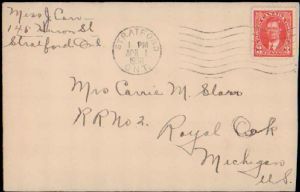 Miss J. Carr
148 Huron St
Stratford, Ont
STRATFORD
1 PM
ONT.
CANADA
Mrs Carrie M. Starr
R R No 2.
Royal Oak
Michigan
U.S.